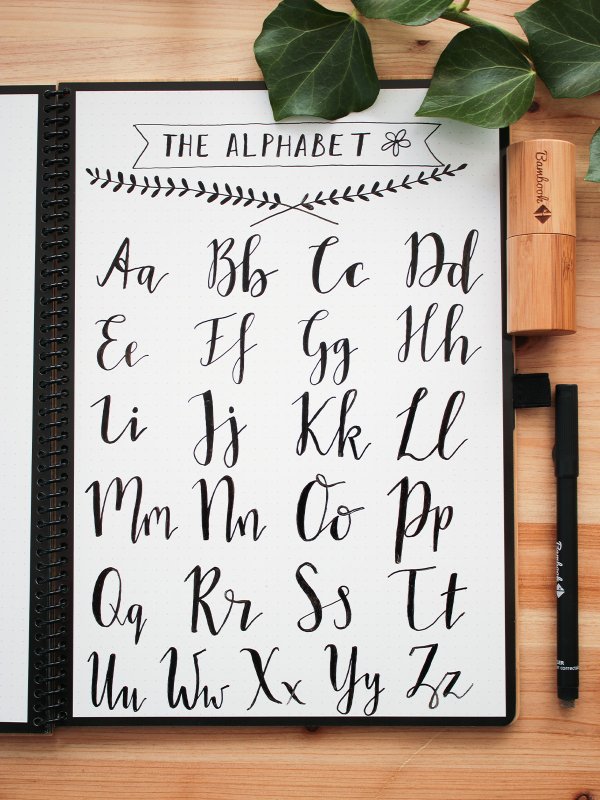 THE ALPHABET
Aa Bb Cc Dd
Ee Ff Gg Hh
Ii Jj Kk Ll
Mm Nn Oo Pp
Qq Rr Ss Tt
Uu Ww Xx Yy Zz
Bambook
Bambook